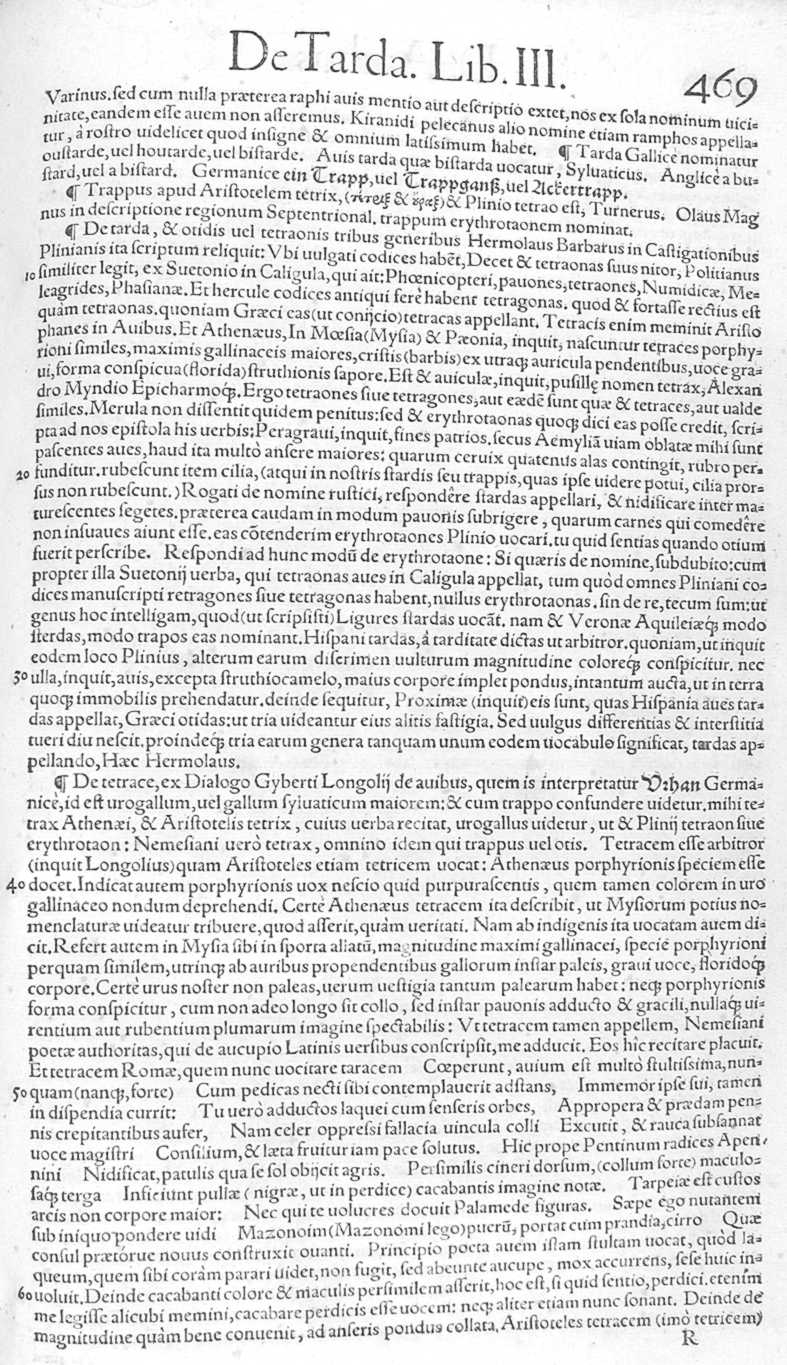 De Tarda. Lib. III. 469
Varinus. sed cum nulla præterea raphi auis mentio aut descriptio extet, nos ex sola nominum uici-
nitate, eandem esse auem non asseremus. Kiranidi pelecanus alio nomine etiam ramphos appella-
tur, à rostro uidelicet quod insigne & omnium latissimum habet. ¶ Tarda Gallicè nominatur
oustarde, uel houtarde, uel bistarde. Auis tarda quæ bistarda uocatur, Syluaticus. Anglicè a bu-
stard, uel a bistard. Germanice ein Trapp, uel Trappganß, uel Ackertrapp.
¶ Trappus apud Aristotelem tetrix, & Plinio tetrao est, Turnerus. Olaus Mag
nus in descriptione regionum Septentrional. trappum erythrotaonem nominat.
¶ De tarda, & otidis uel tetraonis tribus generibus Hermolaus Barbarus in Castigationibus
Plinianis ita scriptum reliquit: Vbi uulgati codices habēt, Decet & tetraonas suus nitor, Politianus
10 similiter legit, ex Suetonio in Caligula, qui ait: Phœnicopteri, pauones, tetraones, Numidicæ, Me-
leagrides, Phasianæ. Et hercule codices antiqui ferè habent tetragonas. quod & fortasse rectius est
quàm tetraonas. quoniam Græci eas (ut conijcio) tetracas appellant. Tetracis enim meminit Aristo
phanes in Auibus. Et Athenæus, In Mœsia (Mysia) & Pæonia, inquit, nascuntur tetraces porphy-
rioni similes, maximis gallinaceis maiores, cristis (barbis) ex utraq; auricula pendentibus, uoce gra-
ui, forma conspicua (florida) struthionis sapore. Est & auiculæ, inquit, pusillę nomen tetrax, Alexan
dro Myndio Epicharmoq;. Ergo tetraones siue tetragones, aut eædē sunt quæ & tetraces, aut ualde
similes. Merula non dissentit quidem penitus: sed & erythrotaonas quoq; dici eas posse credit, scri-
pta ad nos epistola his uerbis: Peragraui, inquit, fines patrios. secus Aemyliā uiam oblatæ mihi sunt
pascentes aues, haud ita multò ansere maiores: quarum ceruix quatenus alas contingit, rubro per-
20 funditur. rubescunt item cilia, (atqui in nostris stardis seu trappis, quas ipse uidere potui, cilia pror-
sus non rubescunt.) Rogati de nomine rustici, respondêre stardas appellari, & nidificare inter ma-
turescentes segetes. præterea caudam in modum pauonis subrigere, quarum carnes qui comedêre
non insuaues aiunt esse. eas cōtenderim erythrotaones Plinio uocari. tu quid sentias quando otium
fuerit perscribe. Respondi ad hunc modū de erythrotaone: Si quæris de nomine, subdubito: cum
propter illa Suetonij uerba, qui tetraonas aues in Caligula appellat, tum quòd omnes Pliniani co-
dices manuscripti retragones siue tetragonas habent, nullus erythrotaonas. sin de re, tecum sum: ut
genus hoc intelligam, quod (ut scripsisti) Ligures stardas uocāt. nam & Veronæ Aquileiæq; modo
sterdas, modo trapos eas nominant. Hispani tardas, à tarditate dictas ut arbitror. quoniam, ut inquit
eodem loco Plinius, alterum earum discrimen uulturum magnitudine coloreq; conspicitur. nec
30 ulla, inquit, auis, excepta struthiocamelo, maius corpore implet pondus, intantum aucta, ut in terra
quoq; immobilis prehendatur. deinde sequitur, Proximæ (inquit) eis sunt, quas Hispania aues tar-
das appellat, Græci otidas: ut tria uideantur eius alitis fastigia. Sed uulgus differentias & interstitia
tueri diu nescit. proindeq; tria earum genera tanquam unum eodem uocabulo significat, tardas ap-
pellando, Hæc Hermolaus.
¶ De tetrace, ex Dialogo Gyberti Longolij de auibus, quem is interpretatur Vrhan Germa-
nicè, id est urogallum, uel gallum syluaticum maiorem: & cum trappo confundere uidetur. mihi te-
trax Athenæi, & Aristotelis tetrix, cuius uerba recitat, urogallus uidetur, ut & Plinij tetraon siue
erythrotaon: Nemesiani uerò tetrax, omnino idem qui trappus uel otis. Tetracem esse arbitror
(inquit Longolius) quam Aristoteles etiam tetricem uocat: Athenæus porphyrionis speciem esse
40 docet. Indicat autem porphyrionis uox nescio quid purpurascentis, quem tamen colorem in uro
gallinaceo nondum deprehendi. Certè Athenæus tetracem ita describit, ut Mysiorum potius no-
menclaturæ uideatur tribuere, quod asserit, quàm ueritati. Nam ab indigenis ita uocatam auem di-
cit. Refert autem in Mysia sibi in sporta allatū, magnitudine maximi gallinacei, specie porphyrioni
perquam similem, utrinq; ab auribus propendentibus gallorum instar paleis, graui uoce, floridoq;
corpore. Certè urus noster non paleas, uerum uestigia tantum palearum habet: neq; porphyrionis
forma conspicitur, cum non adeo longo sit collo, sed instar pauonis adducto & gracili, nullaq; ui-
rentium aut rubentium plumarum imagine spectabilis: Vt tetracem tamen appellem, Nemesiani
poetæ authoritas, qui de aucupio Latinis uersibus conscripsit, me adducit. Eos hic recitare placuit.
Et tetracem Romæ, quem nunc uocitare taracem Cœperunt, auium est multò stultissima, nun-
50 quam (nanq;, forte) Cum pedicas necti sibi contemplauerit adstans, Immemor ipse sui, tamen
in dispendia currit: Tu uerò adductos laquei cum senseris orbes, Appropera & prædam pen-
nis crepitantibus aufer, Nam celer oppressi fallacia uincula colli Excutit, & rauca subsannat
uoce magistri Consilium, & læta fruitur iam pace solutus. Hic prope Pentinum radices Apen-
nini Nidificat, patulis qua se sol obijcit agris. Persimilis cineri dorsum, (collum forte) maculo-
saq; terga Inficiunt pullæ (nigræ, ut in perdice) cacabantis imagine notæ. Tarpeiæ est custos
arcis non corpore maior: Nec qui te uolucres docuit Palamede figuras. Sæpe ego nutantem
sub iniquo pondere uidi Mazonoim (Mazonomi lego) puerū, portat cum prandia, cirro Quæ
consul prætórue nouus construxit ouanti. Principio poeta auem istam stultam uocat, quòd la-
queum, quem sibi coràm parari uidet, non fugit, sed abeunte aucupe, mox accurrens, sese huic in-
60 uoluit. Deinde cacabanti colore & maculis persimilem asserit, hoc est, si quid sentio, perdici. etenim
me legisse alicubi memini, cacabare perdicis esse uocem: neq; aliter etiam nunc sonant. Deinde de
magnitudine quàm bene conuenit, ad anseris pondus collata. Aristoteles tetracem (imò tetricem)
R